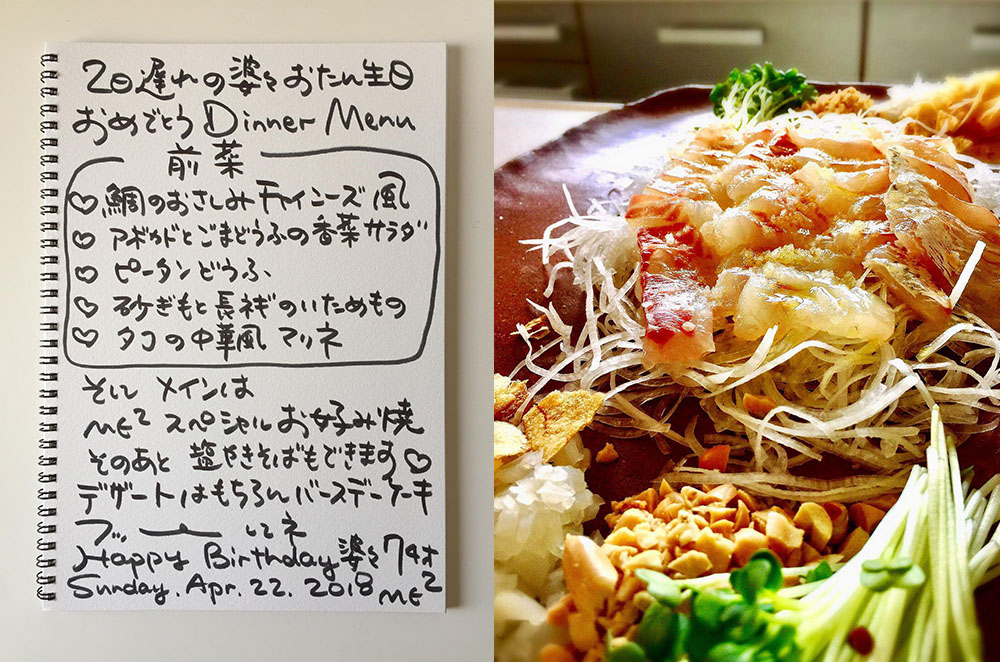 2日遅れの婆々おたん生日
おめでとう Dinner Menu
前菜
♡ 鯛のおさしみチャイニーズ風
♡ アボカドとごまどうふの香菜サラダ
♡ ピータンどうふ
♡ 砂ぎもと長ネギのいためもの
♡ タコの中華風マリネ
そして メインは
ME² スペシャルお好み焼
そのあと 塩やきそばもできます♡
デザートはもちろんバースデーケーキ
フッーーしてネ
Happy Birthday 婆々 74才
Sunday. Apr. 22. 2018 ME²